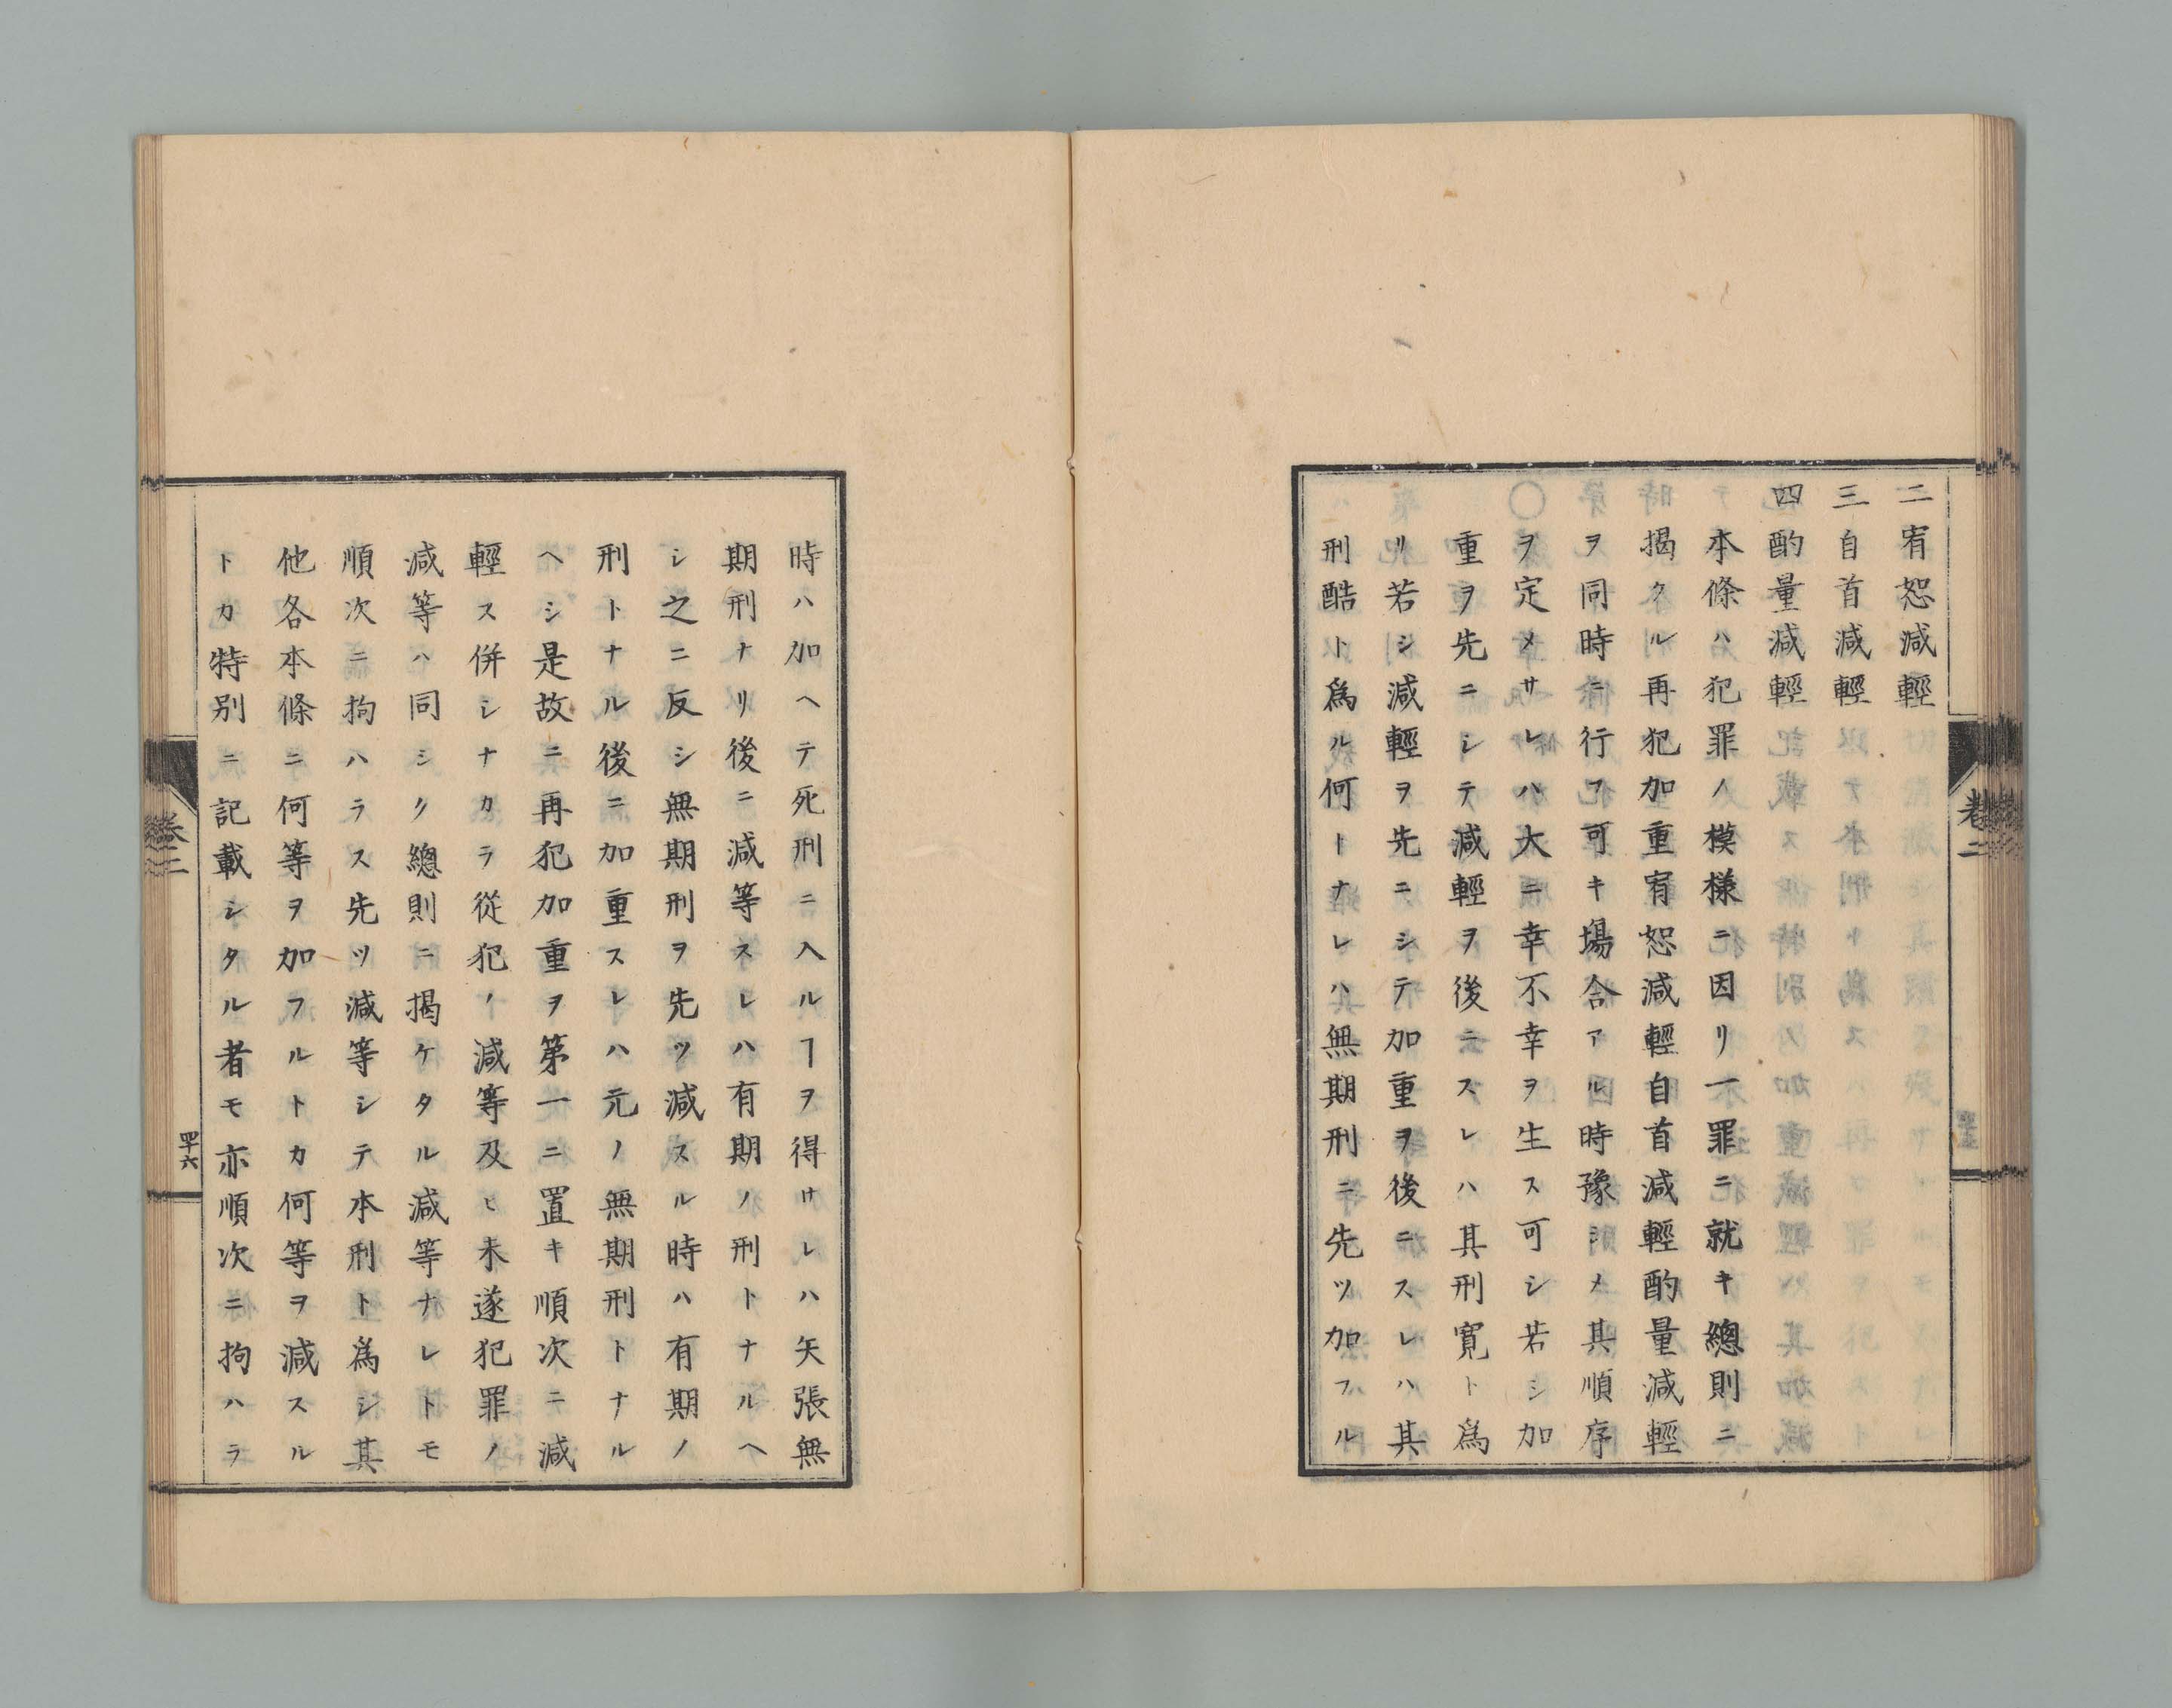 二宥恕減輕
三自首減輕
四酌量減輕
本條ハ犯罪ノ模樣ニ因リ一罪ニ就キ總則ニ
揭クル再犯加重宥恕減輕自首減輕酌量減輕
ヲ同時ニ行フ可キ場合アル時豫シメ其順序
ヲ定メサレハ大ニ幸不幸ヲ生ス可シ若シ加
重ヲ先ニシテ減輕ヲ後ニスレハ其刑寬ト爲
リ若シ減輕ヲ先ニシテ加重ヲ後ニスレハ其
刑酷ト爲ル何トナレハ無期刑ニ先ツ加フル
卷二
時ハ加ヘテ死刑ニ入ルヿヲ得サレハ矢張無
期刑ナリ後ニ減等スレハ有期ノ刑トナルヘ
シ之ニ反シ無期刑ヲ先ツ減スル時ハ有期ノ
刑トナル後ニ加重スレハ元ノ無期刑トナル
ヘシ是故ニ再犯加重ヲ第一ニ置キ順次ニ減
輕ス併シナカラ從犯ノ減等及ヒ未遂犯罪ノ
減等ハ同シク總則ニ揭ケタル減等ナレトモ
順次ニ拘ハラス先ツ減等シテ本刑ト爲シ其
他各本條ニ何等ヲ加フルトカ何等ヲ減スル
トカ特別ニ記載シタル者モ亦順次ニ拘ハラ
卷二
四十六